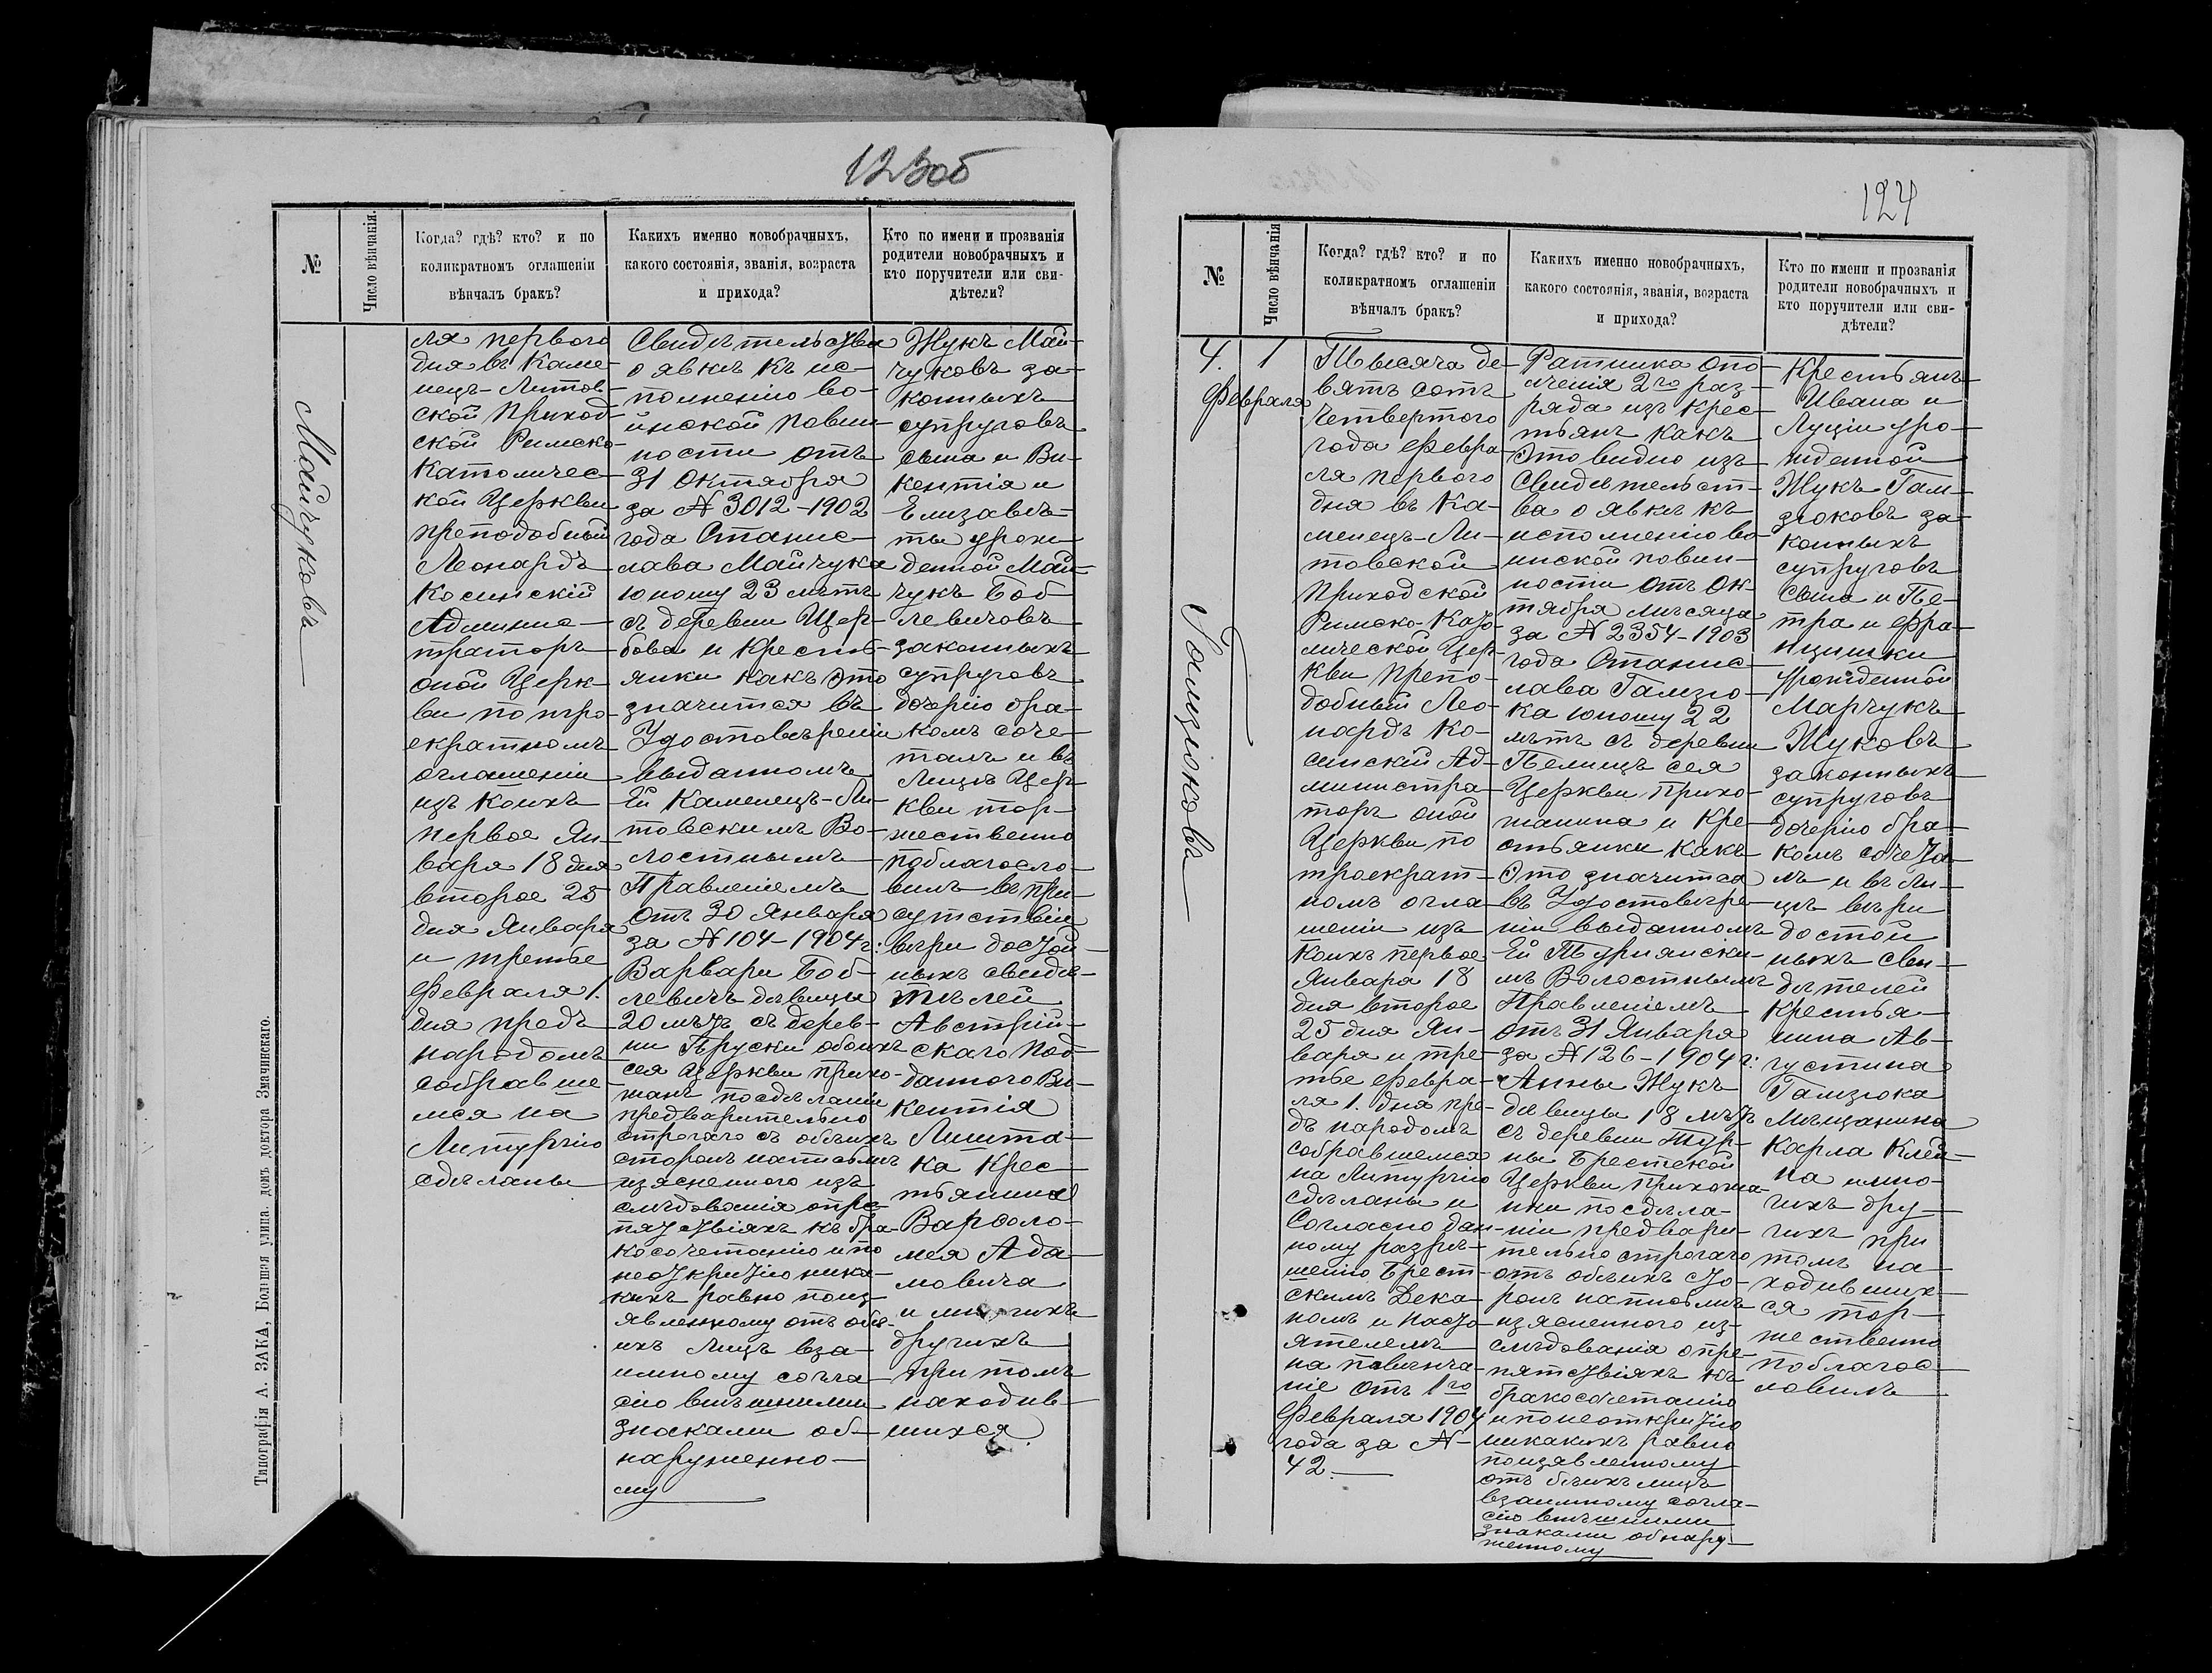 123об
№
Число вѣнчанія.
Когда? гдѣ? кто? и по
коликратномъ оглашеніи
вѣнчалъ бракъ?
Какихъ именно новобрачныхъ,
какого состоянія, званія, возраста
и прихода?
Кто по имени и прозванія
родители новобрачныхъ и
кто поручители или сви-
дѣтели?
Майчуковъ
ля перваго
дня въ Каме-
нецъ-Литов-
ской Приход-
ской Римско-
Католичес-
кой Церкви
преподобный
Леонардъ
Косинскій
Админис-
траторъ
оной Церк-
ви по тро-
екратномъ
оглашеніи
изъ коихъ
первое Ян-
варя 18 дня
второе 25
дня Января
и третье
Февраля 1.
дня предъ
народомъ
собравше-
мся на
Литургію
сдѣланы
Свидѣтельства
о явкѣ къ ис-
полненію во-
инской повин-
ности отъ
31 Октября
за № 3012-1902
года Станис-
лава Майчука
юношу 23 лѣтъ
съ деревни Щер-
бова и Кресть-
янки какъ это
значится въ
Удостовѣреніи
выданномъ
Ей Каменецъ-Ли-
товскимъ Во-
лостнымъ
Правленіемъ
отъ 30 Января
за № 104-1904 г:
Варвари Боб-
левичъ дѣвицы
20 лѣтъ съ дерев-
ни Пруски обоихъ
сея Церкви прихо-
жанъ посдѣланіи
предварительно
строгаго съ обѣихъ
сторонъ написьмѣ
изясненного изъ
слѣдованія опре-
пятствіяхъ къ бра-
косочетанію ипо
неоткритію ника-
кихъ равно поиз-
явленному отъ обѣ-
ихъ лицъ вза-
имному согла-
сію внѣшними
знаками об-
наруженно-
му
Жукъ Май-
чуковъ за-
конныхъ
супруговъ
сына и Ви-
кентія и
Елизавѣ-
ты урож-
денной Май-
чукъ Боб-
левичовъ
законныхъ
супруговъ
дочерію бра-
комъ соче-
талъ и въ
Лицѣ Цер-
кви тор-
жественно
поблагосло-
вилъ въ при-
сутствіи
вѣри достой-
ныхъ свидѣ-
тѣлей
Австрій-
скаго под-
данного Ви-
кентія
Лишта-
ка Крес-
тьянина
Варфоло-
мея Ада-
мовича
и многихъ
другихъ
при томъ
находив-
шихся
Типографія А. ЗАКА, Большая улица. домъ доктора Змачинскаго.
124
№
Число вѣнчанія
Когда? гдѣ? кто? и по
коликратномъ оглашеніи
вѣнчалъ бракъ?
Какихъ именно новобрачныхъ,
какого состоянія, званія, возраста
и прихода?
Кто по имени и прозванія
родители новобрачныхъ и
кто поручители или сви-
дѣтели?
4. 1
Февраля
Гамзюковъ
Тысяча де-
вятъ сотъ
четвертого
года Февра-
ля перваго
дня въ Ка-
менецъ-Ли-
товской
Приходской
Римско-Като-
лической Цер-
кви препо-
добный Лео-
нардъ Ко-
синскій Ад-
министра-
торъ оной
Церкви по
троекрат-
номъ огла-
шеніи изъ
коихъ первое
Января 18
дня второе
25 дня Ян-
варя и тре-
тье Февра-
ля 1. дня пре-
дъ народомъ
собравшемся
на Литургію
сдѣланы и
Согласно дан-
ному разрѣ-
шенію Брест-
скимъ Дека-
номъ и Насто-
ятелемъ
на повѣнча-
ніе отъ 1го
Февраля 1904
года за №
42.
Ратника опо-
лченія 2го раз-
ряда изъ крес-
тьянъ какъ
это видно изъ
Свидѣтельст-
ва о явкѣ къ
исполненію во-
инской повин-
ности отъ Ок-
тября мѣсяца
за № 2354-1903
года Станис-
лава Гамзю-
ка юношу 22
лѣтъ съ деревни
Пелищъ сея
Церкви прихо-
жанина и Кре-
стьянки какъ
это значится
въ Удостовѣре-
ніи выданномъ
Ей Турнянски-
мъ Волостнымъ
Правленіемъ
отъ 31 Января
за № 126-1904 г:
Анны Жукъ
дѣвицы 18 лѣтъ
съ деревни Тур-
ны Брестской
Церкви прихожа-
нки посдѣла-
ніи предвари-
тельно строгаго
отъ обѣихъ сто-
ронъ написьмѣ
изясненного из-
слѣдованія опре-
пятствіяхъ къ
бракосочетанію
ипо неоткритію
никакихъ равно
поизявленному
отъ обѣихъ лицъ
взаимному согла-
сію внѣшними
знаками обнару-
женному
Крестьянъ
Ивана и
Луціи уро-
жденной
Жукъ Гам-
зюковъ за-
конныхъ
супруговъ
Сына и Пе-
тра и Фра-
нцишки
Урожденной
Марчукъ
Жуковъ
законныхъ
супруговъ
дочерію бра-
комъ сочета-
лъ и въ Ли-
цѣ вѣри
достой
ныхъ сви-
дѣтелей
Крестья-
нина Ав-
густина
Гамзюка
Мѣщанина
Карла Клей-
на и мно-
гихъ дру-
гихъ при
томъ на-
ходивших-
ся тор-
жественно
поблагос-
ловилъ